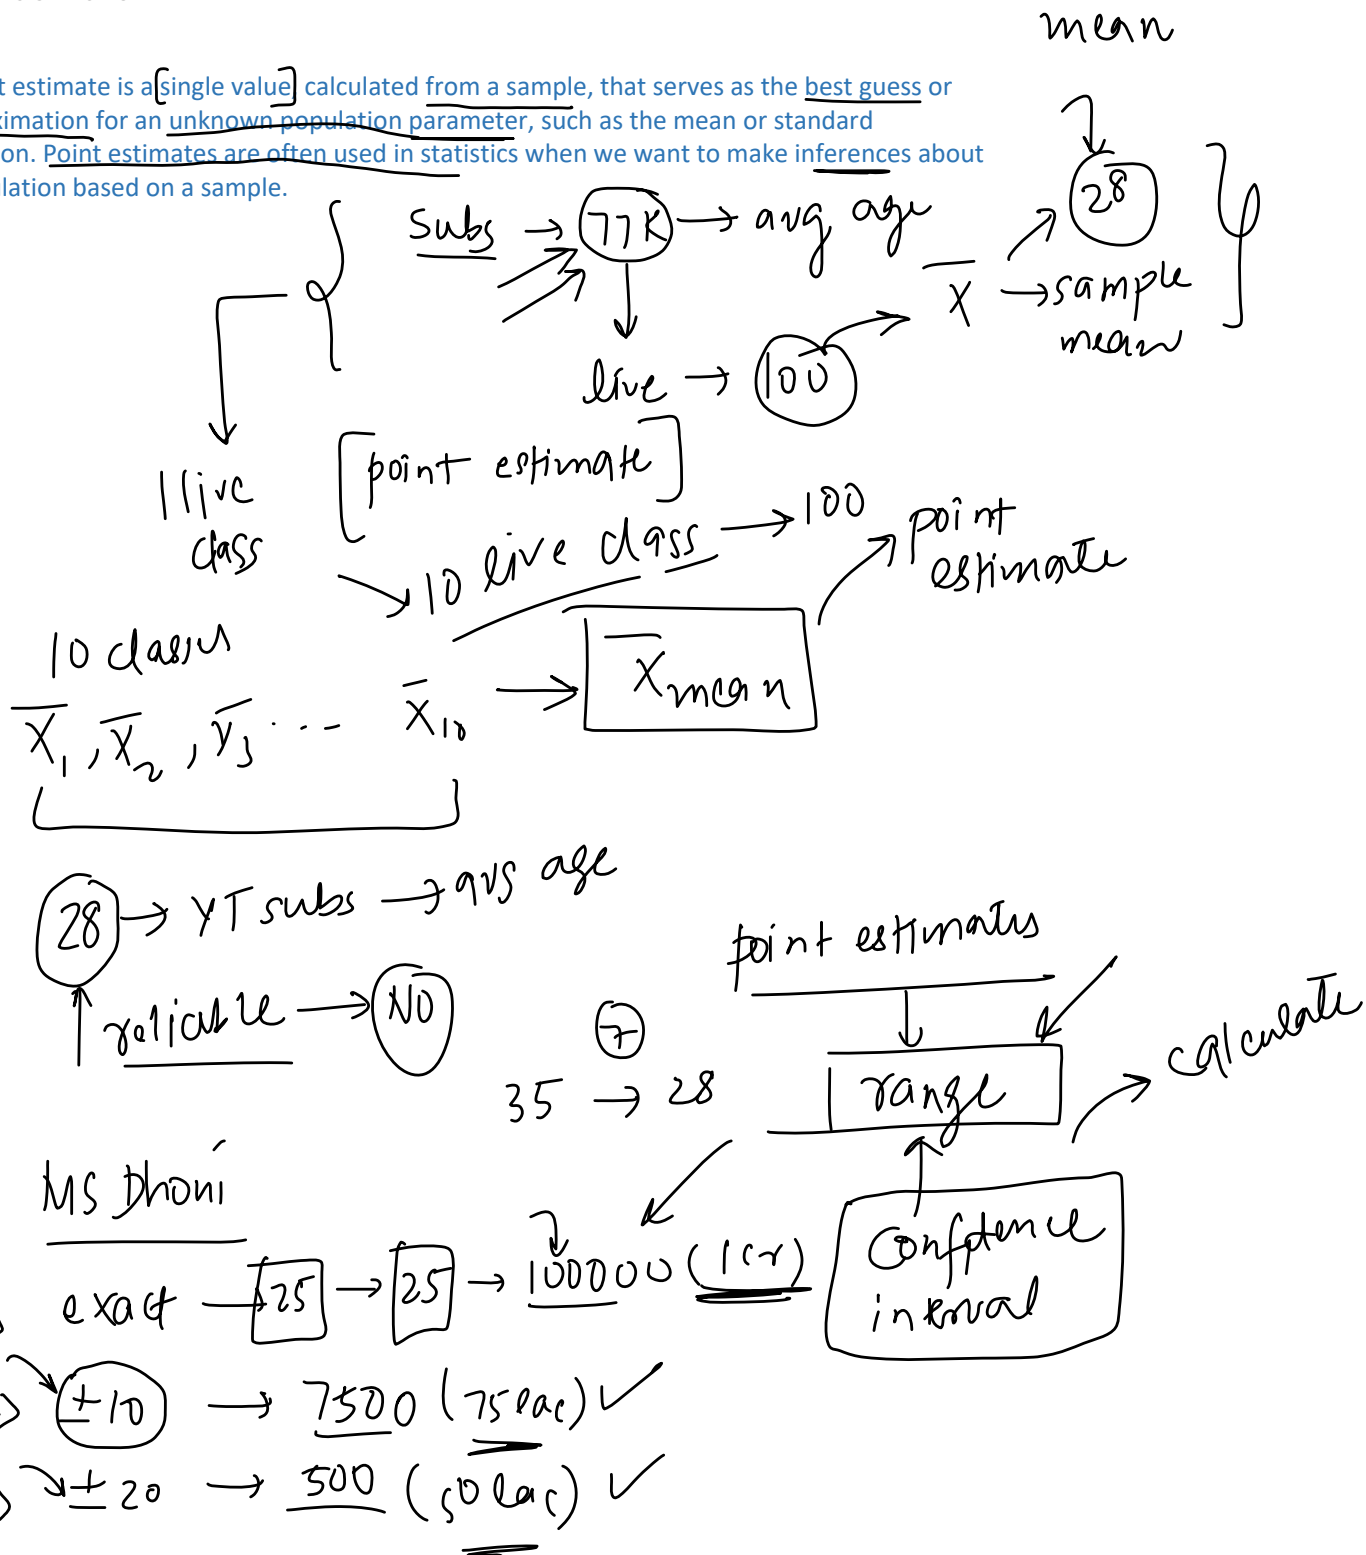 mean
t estimate is a [single value] calculated from a sample, that serves as the best guess or
ximation for an unknown population parameter, such as the mean or standard
on. Point estimates are often used in statistics when we want to make inferences about
lation based on a sample.
28
subs → 77K → avg age
x̄ → sample
mean
live → 100
[point estimate]
1 live
class
10 live class → 100
point
estimate
10 classes
x̄1, x̄2, x̄3 ... x̄10 → x̄mean
28 → YT subs → avg age
point estimates
reliable → NO
7
35 → 28
range
calculate
MS Dhoni
confidence
interval
exact → 25 → 25 → 100000 (1cr)
±10 → 7500 (75 lac) ✓
±20 → 500 (50 lac) ✓